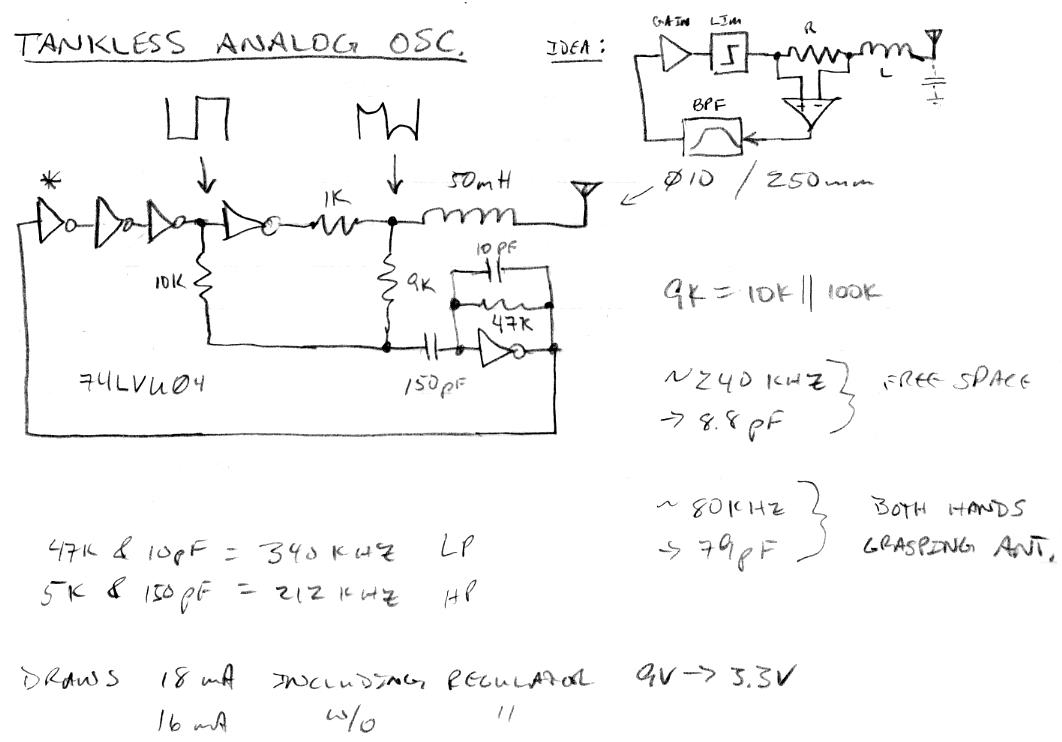 TANKLESS ANALOG OSC.
IDEA:
GAIN LIM
R
L
BPF
Ø10 / 250mm
*
1K
50mH
10K
9K
10PF
47K
150pF
74LVU04
9K = 10K || 100K
~240KHZ } FREE SPACE
→ 8.8pF
~80KHZ } BOTH HANDS
→ 79pF GRASPING ANT.
47K & 10pF = 340KHZ LP
5K & 150pF = 212KHZ HP
DRAWS 18mA INCLUDING REGULATOR 9V→3.3V
16mA W/O "